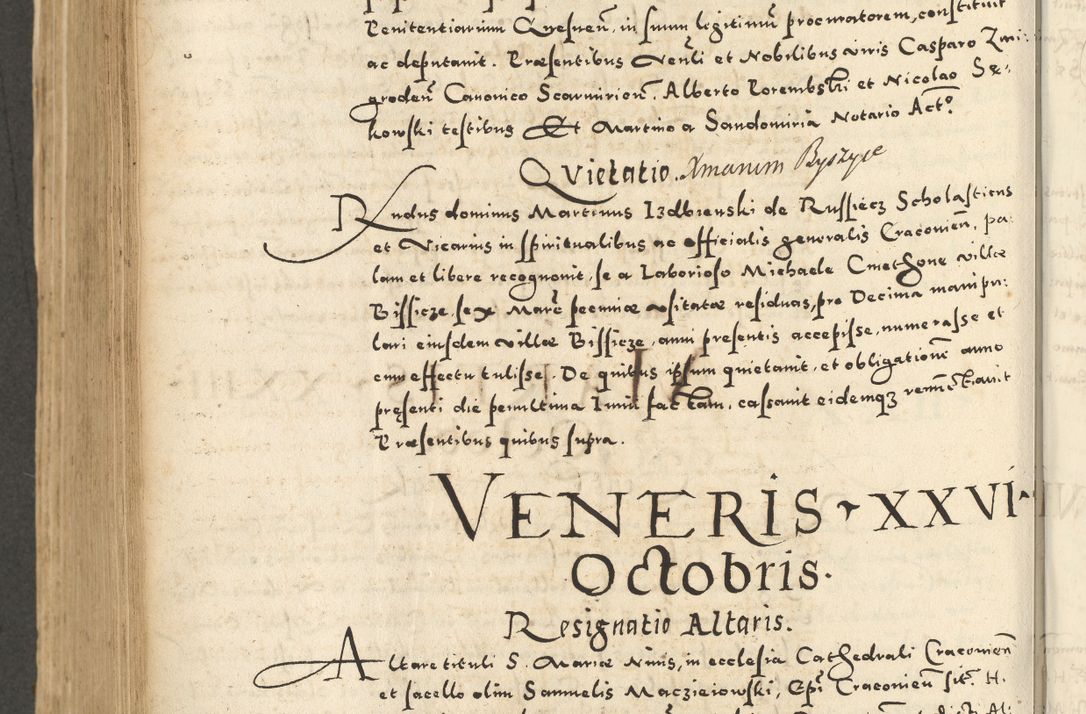 Penitentiarium Gnesnen̄, in suum legitimū procuratorem, constituit
ac deputauit. Præsentibus Venli et Nobilibus viris Casparo
groden̄ Canonico Scarmirien̄. Alberto Porembski et Nicolao Se-
kowski testibus Et Martino a Sandomiria Notario Acto.
Quietatio. Xmanum Byszyce
Rndus dominus Martinus Izdbienski de Russiecz Scholasticus
et Vicarius in spiritualibus ac officialis generalis Cracouien̄, pa-
lam et libere recognouit, se a Laborioso Michaele Cmethone villæ
Bissicze sex Marc̄ pecuniæ usitatæ residuas, pro Decima manipu-
lari eiusdem villæ Bissicze, anni presentis accepisse, numerasse et
cum effectu tulisse. De quibus ipsum quietauit, et obligationē anno
pręsenti die penultima Iunii factam, cassauit eidemqȝ
Præsentibus quibus supra.
VENERIS XXVI
Octobris.
Resignatio Altaris.
Altare tituli S. Mariæ Niuis, in ecclesia Cathedrali Cracouien̄
et sacello olim Samuelis Maczieiowski, Epi Cracouien̄ sit. H.